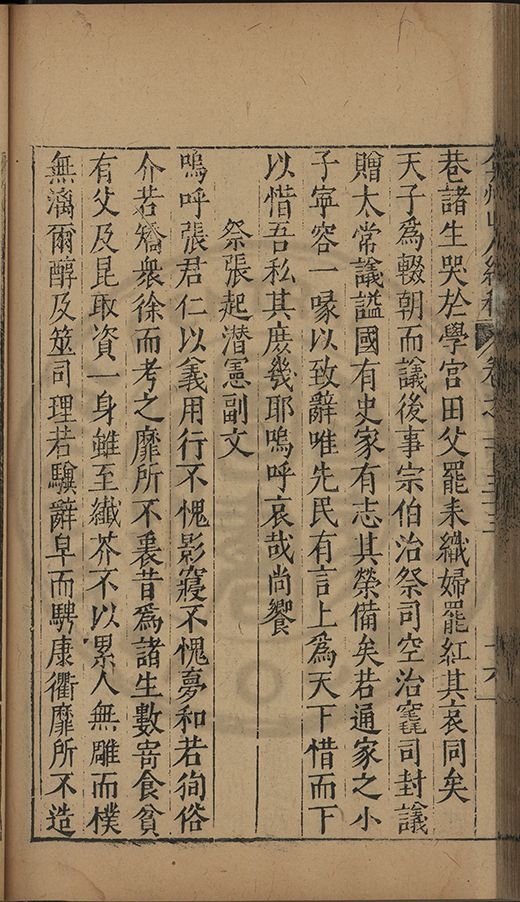 巷諸生哭於學宮田父罷耒織婦罷紅其哀同矣
天子爲輟朝而議後事宗伯治祭司空治窀司封議
贈太常議謚國有史家有志其榮備矣若通家之小
子寧容一喙以致辭唯先民有言上爲天下惜而下
以惜吾私其庶幾耶嗚呼哀哉尚饗
祭張起潛憲副文
嗚呼張君仁以義用行不愧影寢不愧夢和若徇俗
介若矯衆徐而考之靡所不衷昔爲諸生數寄食貧
有父及昆取資一身雖至纖芥不以累人無雕而樸
無漓爾醇及筮司理若驥辭皁而騁康衢靡所不造